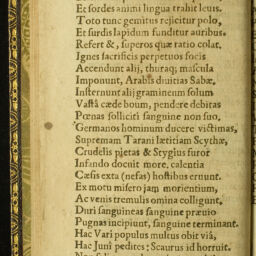 Et sordes animi lingua trahit leuis.
Toto tunc gemitus rejicitur polo,
Et surdis lapidum funditur auribus.
Refert &, superos quæ ratio colat.
Ignes sacrificis perpetuos focis
Accendunt alij, thuraq; mascula
Imponunt, Arabis diuitias Sabæ,
Insternunt alij gramineum solum
Vastâ cæde boum, pendere debitas
Pœnas solliciti sanguine non suo.
Germanos hominum ducere victimas,
Supremam Tarani lætitiam Scythæ,
Crudelis pietas & Stygius furor
Infando docuit more, calentia
Cæsis exta (nefas) hostibus eruunt.
Ex motu misero jam morientium,
Ac venis tremulis omina colligunt,
Duri sanguineas sanguine præuio
Pugnas incipiunt, sanguine terminant.
Hac Vari populus multus obit viâ,
Hac Junî pedites; Scaurus id horruit.